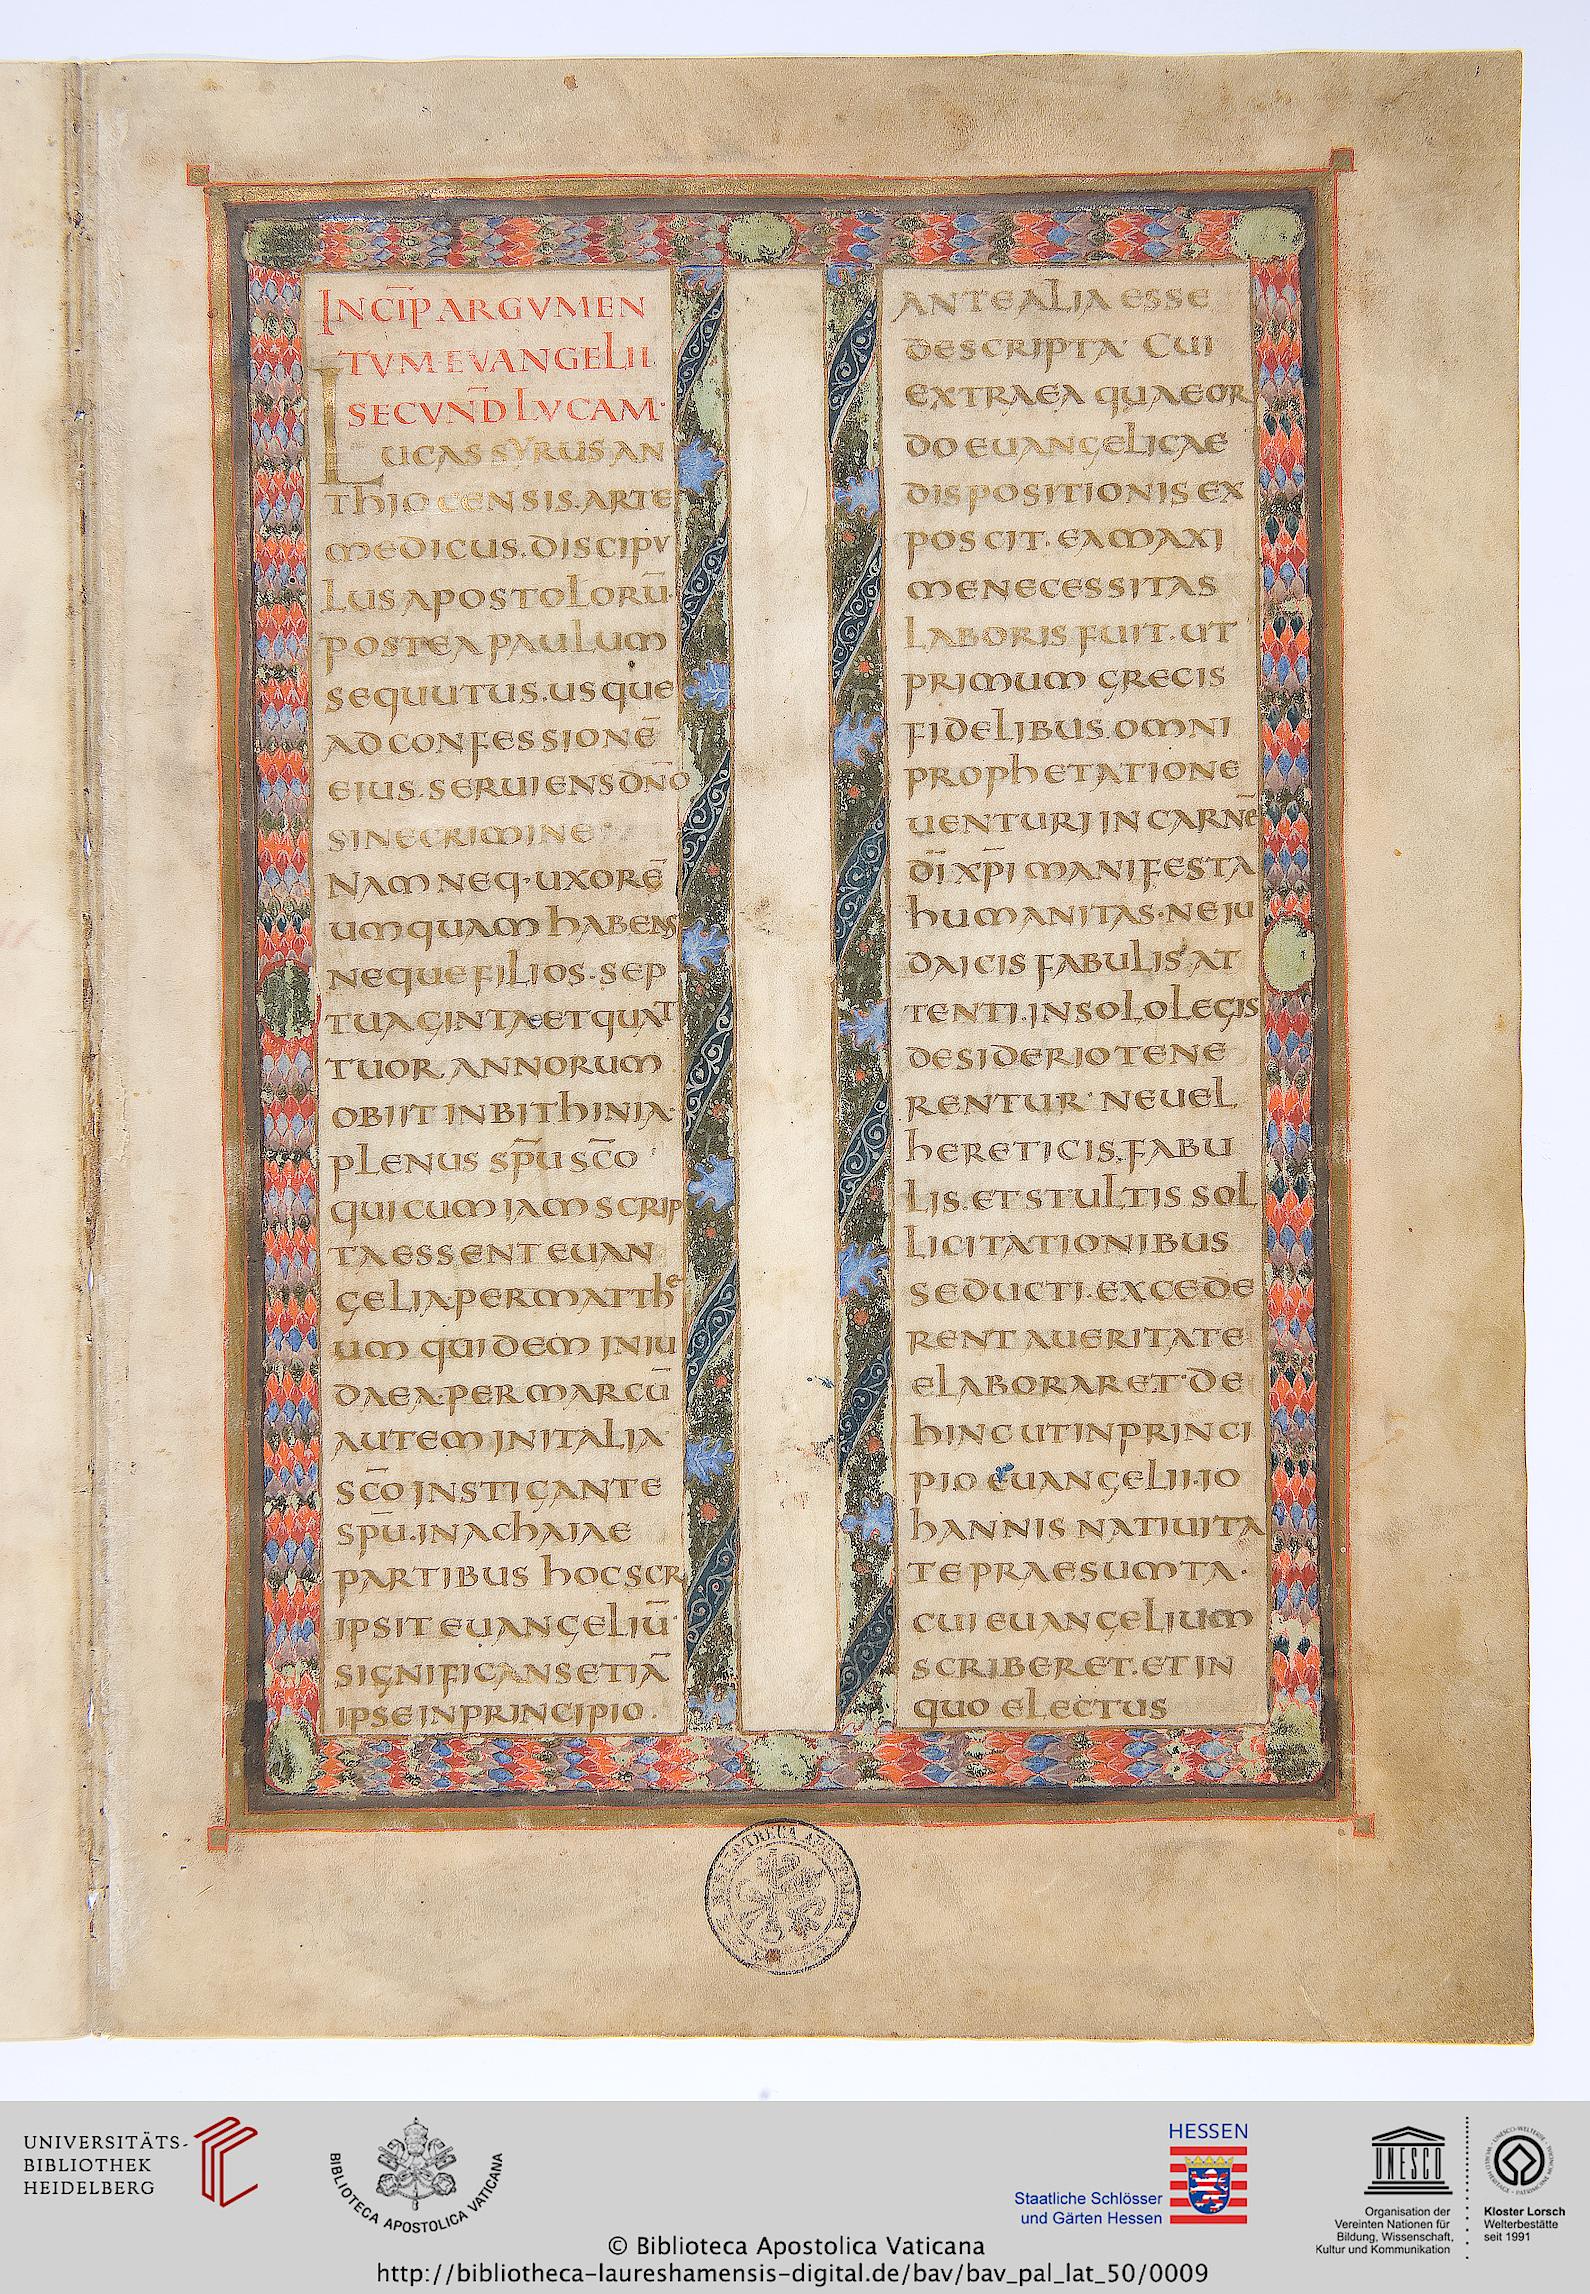 INCIP̅ ARGVMEN
TVM EVANGELII
SECVND̅ LVCAM·
LUCAS SYRUS AN
THIOCENSIS. ARTE
MEDICUS. DISCIPV
LUS APOSTOLORU̅·
POSTEA PAULUM
SEQUUTUS. USQUE
AD CONFESSIONE̅
EIUS. SERUIENS DN̅O
SINE CRIMINE·
NAM NEQ· UXORE̅
UMQUAM HABENS
NEQUE FILIOS. SEP
TUAGINTA ET QUAT
TUOR ANNORUM
OBIIT IN BITHINIA·
PLENUS SP̅U SC̅O
QUI CUM IAM SCRIP
TA ESSENT EUAN
GELIA· PER MATTHE
UM QUIDEM IN IU
DAEA· PER MARCU̅
AUTEM IN ITALIA·
SC̅O INSTIGANTE
SP̅U. IN ACHAIAE
PARTIBUS HOC SCR
IPSIT EUANGELIU̅·
SIGNIFICANS ETIA̅
IPSE IN PRINCIPIO.
ANTE ALIA ESSE
DESCRIPTA· CUI
EXTRA EA QUAE OR
DO EUANGELICAE
DISPOSITIONIS EX
POSCIT· EA MAXI
ME NECESSITAS
LABORIS FUIT. UT
PRIMUM GRECIS
FIDELIBUS. OMNI
PROPHETATIONE
UENTURI IN CARNE̅
DI̅ XP̅I MANIFESTA
HUMANITAS· NE IU
DAICIS FABULIS AT
TENTI. IN SOLO LEGIS
DESIDERIO TENE
RENTUR· NE UEL
HERETICIS. FABU
LIS. ET STULTIS SOL
LICITATIONIBUS
SEDUCTI. EXCEDE
RENT A UERITATE
ELABORARET· DE
HINC UT IN PRINCI
PIO EUANGELII· IO
HANNIS NATIUITA
TE PRAESUMTA·
CUI EUANGELIUM
SCRIBERET. ET IN
QUO ELECTUS
UNIVERSITÄTS-
BIBLIOTHEK
HEIDELBERG
BIBLIOTECA APOSTOLICA VATICANA
HESSEN
Staatliche Schlösser
und Gärten Hessen
UNESCO
Organisation der
Vereinten Nationen für
Bildung, Wissenschaft,
Kultur und Kommunikation
Kloster Lorsch
Welterbestätte
seit 1991
© Biblioteca Apostolica Vaticana
http://bibliotheca-laureshamensis-digital.de/bav/bav_pal_lat_50/0009